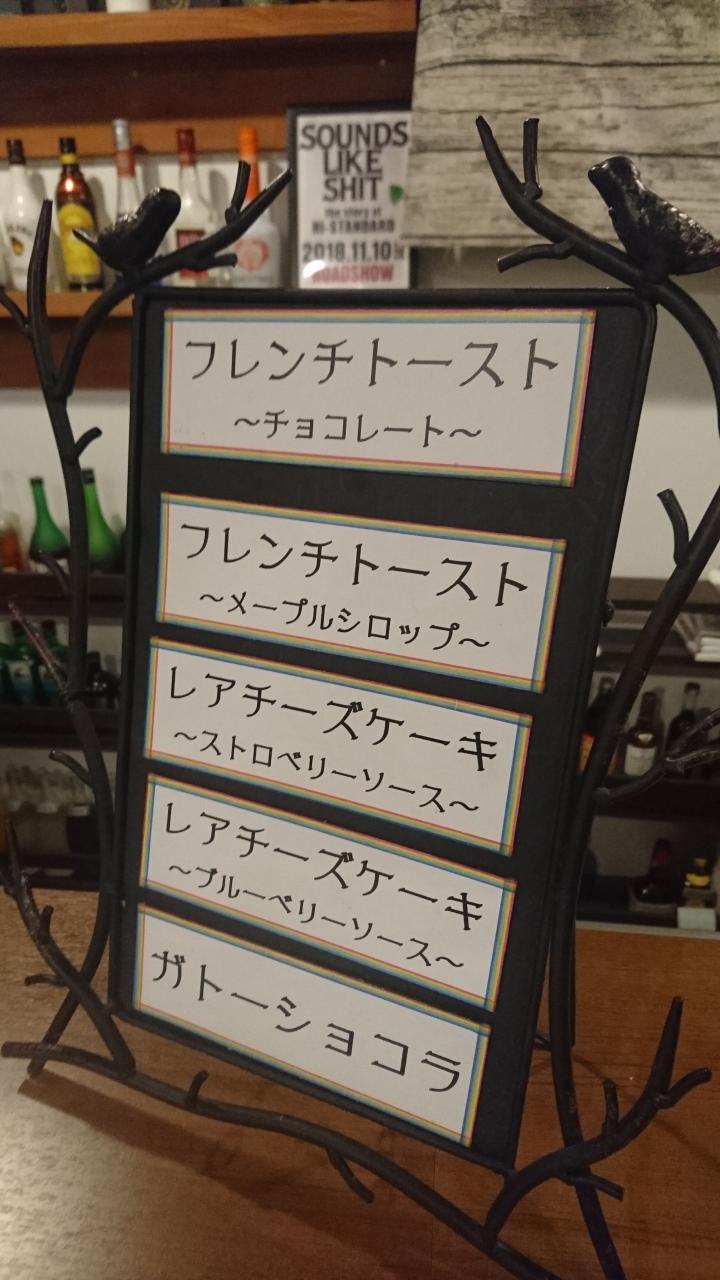 SOUNDS
LIKE
SHIT
the story of
Hi-STANDARD
2018.11.10
ROADSHOW
フレンチトースト
～チョコレート～
フレンチトースト
～メープルシロップ～
レアチーズケーキ
～ストロベリーソース～
レアチーズケーキ
～ブルーベリーソース～
ガトーショコラ